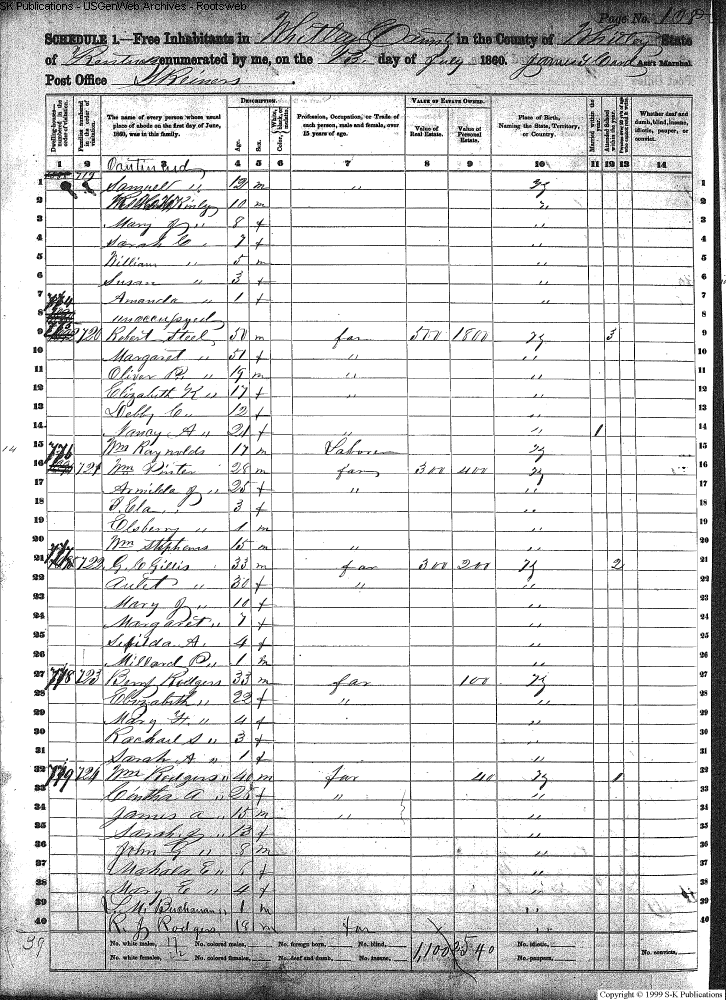 SK Publications - USGenWeb Archives - Rootsweb
Page No.
SCHEDULE 1.—Free Inhabitants in Whitley County in the County of Whitley State
of Kentucky enumerated by me, on the day of July 1860. Ass't Marshal
Post Office
Dwelling-houses—numbered in the order of visitation.
Families numbered in the order of visitation.
The name of every person whose usual place of abode on the first day of June, 1860, was in this family.
DESCRIPTION.
Age.
Sex.
Color, White, black, or mulatto.
Profession, Occupation, or Trade of each person, male and female, over 15 years of age.
VALUE OF ESTATE OWNED.
Value of Real Estate.
Value of Personal Estate.
Place of Birth, Naming the State, Territory, or Country.
Married within the year.
Attended School within the year.
Whether deaf and dumb, blind, insane, idiotic, pauper, or convict.
1 2 3 4 5 6 7 8 9 10 11 12 13 14
1 719 Samuel " 12 m " Ky 1
2 10 m " 2
3 Mary J " 8 f " 3
4 Sarah C " 7 f " 4
5 William " 5 m " 5
6 Susan " 3 f " 6
7 Amanda " 1 f " 7
8 774 unoccupyed 8
9 775 720 Robert Steel 50 m far 500 1800 Ky 3 9
10 Margaret " 51 f " " 10
11 Oliver P. " 19 m " 11
12 Elizabeth K " 17 f " 12
13 Debby C " 12 f " 13
14 Nancy A " 21 f " " 1 14
15 Wm Raynolds 17 m Laborer Ky 15
16 776 721 Wm 28 m far 300 400 Ky 16
17 Armilda J " 25 f " " 17
18 3 f " 18
19 Elsberry " 1 m " 19
20 Wm Stephens 15 m " "
21 777 722 G. W Gillis 33 m far 300 200 Ky 2 21
22 " 30 f " " 22
23 Mary J " 10 f " 23
24 Margaret " 7 f " 24
25 A. " 4 f " 25
26 Millard P " 1 m " 26
27 778 723 Benj Rodgers 33 m far 100 Ky 27
28 Elizabeth " 22 f " " 28
29 Mary H " 4 f " 29
30 Rachael S " 3 f " 30
31 Sarah A " 1 f " 31
32 779 724 Wm Rodgers " 40 m far 40 Ky 1 32
33 Cintha A " 25 f " " 33
34 James A " 15 m " " 34
35 Sarah J " 13 f " 35
36 John G " 8 m " 36
37 Mahala E " 6 f " 37
38 Mary E " 4 f " 38
39 Buchanan " 1 m " 39
40 R. J. Rodgers 18 m far " 40
No. white males, No. colored males, No. foreign born, No. blind, 1,100 2540 No. idiotic,
No. white females, No. colored females, No. deaf and dumb, No. insane, No. paupers, No. convicts,
14
39
Copyright © 1999 S-K Publications